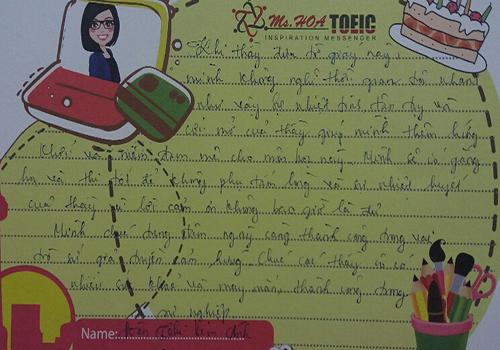 Ms. HOA TOEIC
INSPIRATION MESSENGER
Khi thầy đưa tờ giấy này,
mình không nghĩ thời gian trôi nhanh
như vậy. Sự nhiệt tình, tận tụy và
cởi mở của thầy giúp mình thêm hứng
khởi và niềm đam mê cho môn học này. Mình sẽ cố gắng
học và thi tốt để không phụ tấm lòng và sự nhiệt huyết
của thầy vì lời cảm ơn không bao giờ là đủ
Mình chúc trung tâm ngày càng thành công trong vai
trò sứ giả truyền cảm hứng. Chúc các thầy cô có
nhiều sức khỏe và may mắn, thành công trong
sự nghiệp
Name: Trần Kim Anh